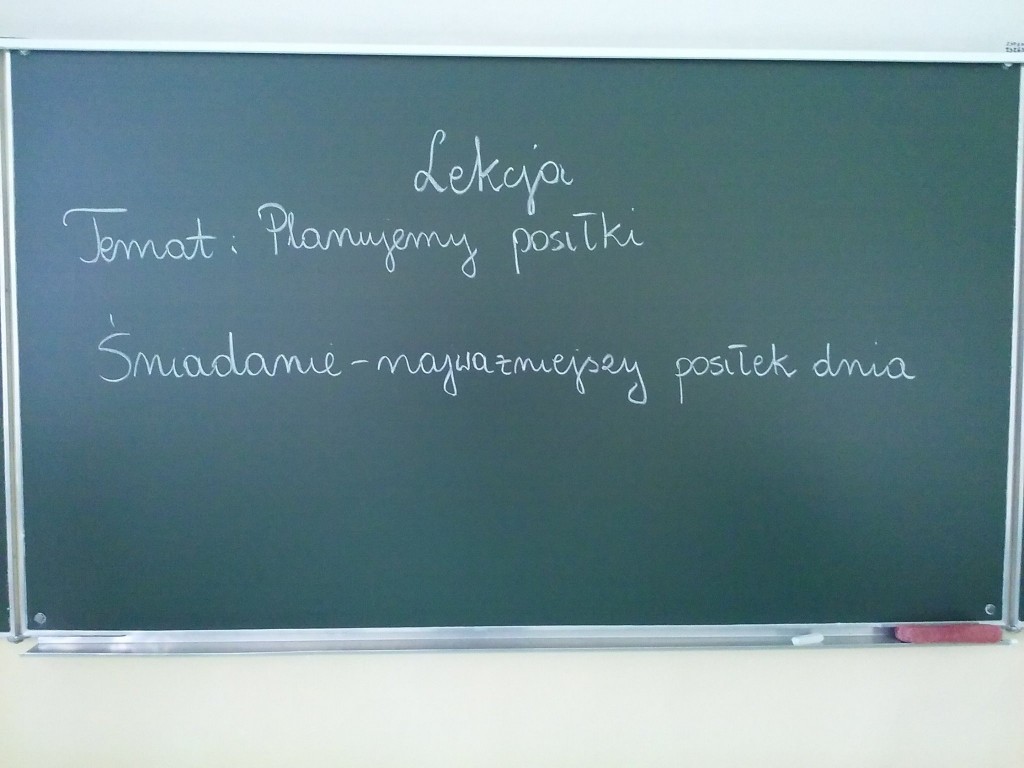 Lekcja
Temat: Planujemy posiłki
Śniadanie - najważniejszy posiłek dnia